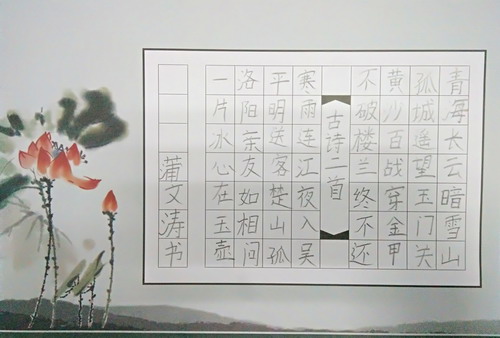 青海长云暗雪山
孤城遥望玉门关
黄沙百战穿金甲
不破楼兰终不还
古诗二首
寒雨连江夜入吴
平明送客楚山孤
洛阳亲友如相问
一片冰心在玉壶
文涛书